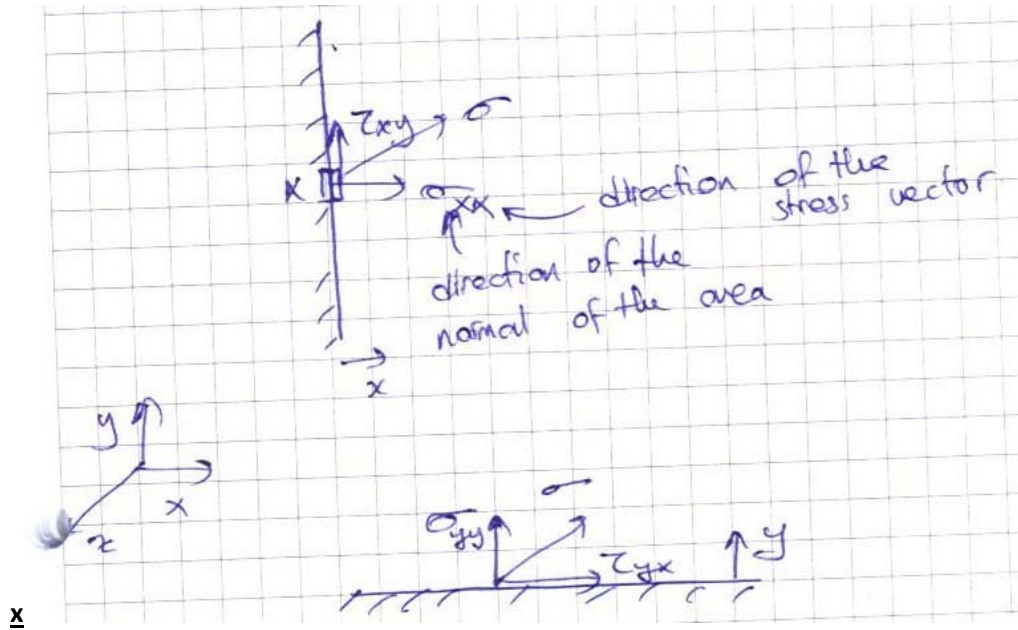 τxy
σ
x
σxx
direction of the
stress vector
direction of the
normal of the area
x
y
x
σ
σyy
τyx
y
x